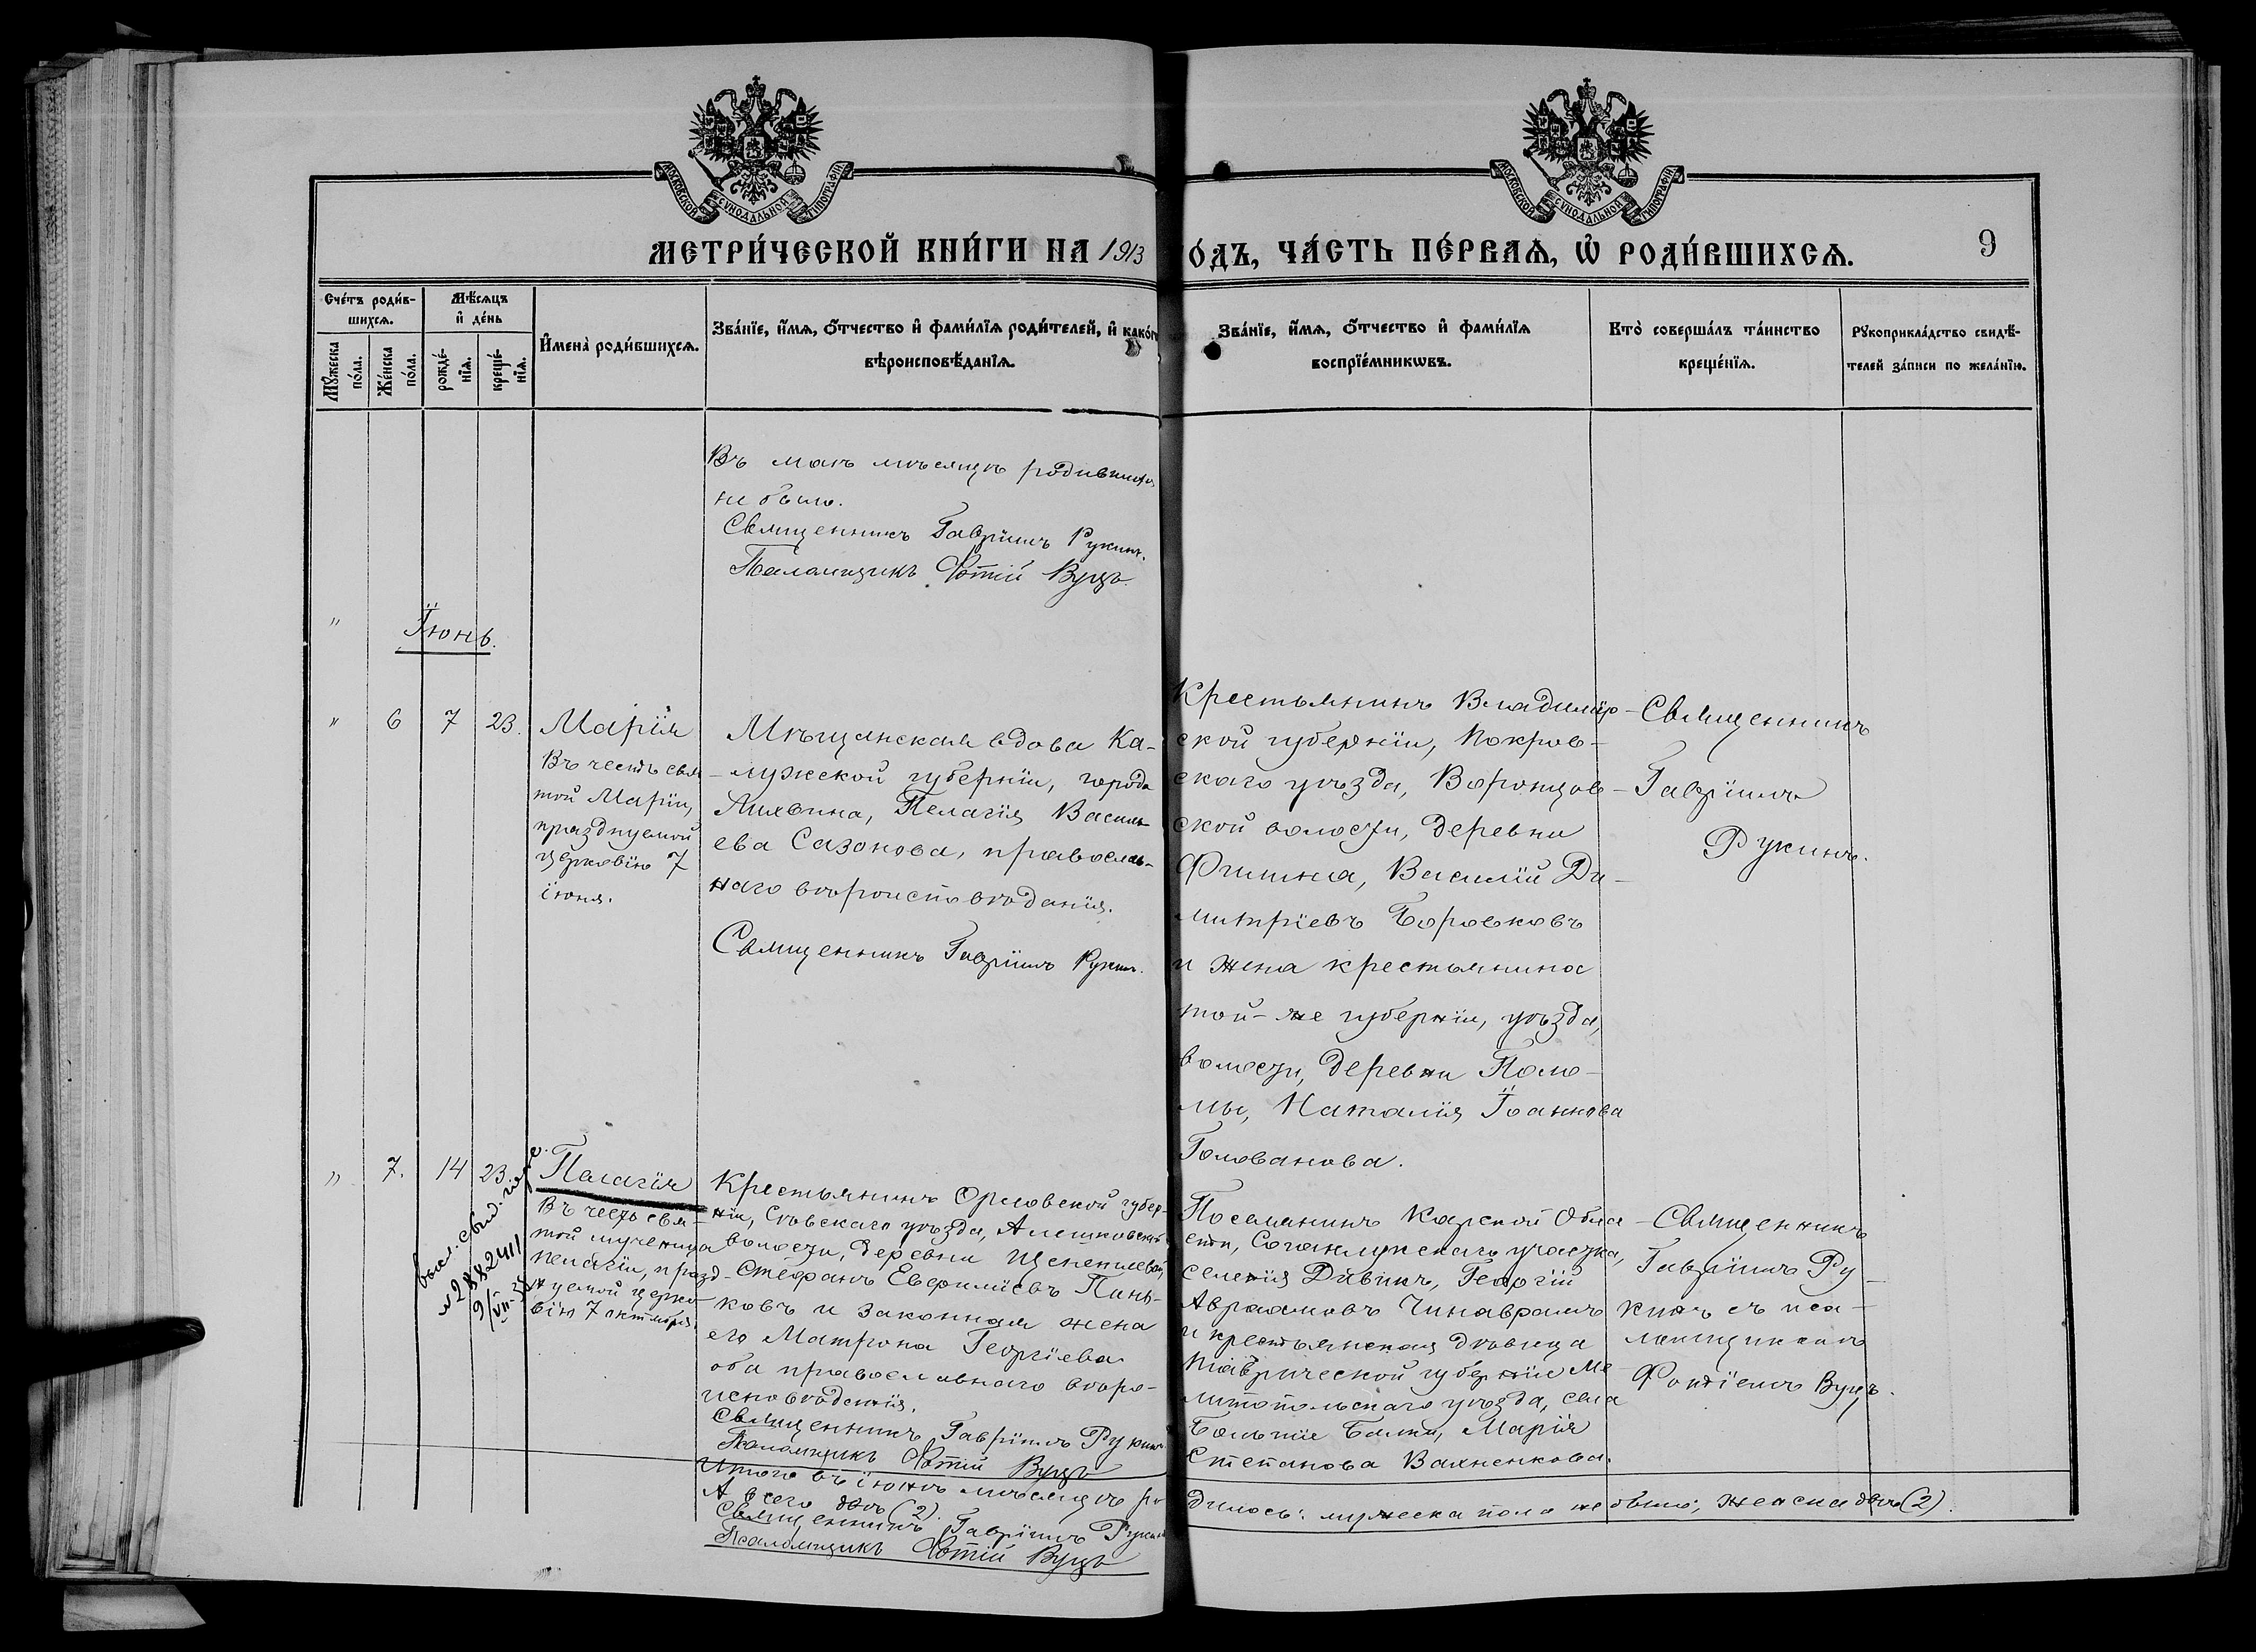 МОСКОВСКОЙ СѴНОДАЛЬНОЙ ТИПОГРАФІИ
МОСКОВСКОЙ СѴНОДАЛЬНОЙ ТИПОГРАФІИ
МЕТРИ́ЧЕСКОЙ КНИ́ГИ НА 1913
О́ДЪ, ЧА́СТЬ ПЕ́РВАѦ, Ѡ҆ РОДИ́ВШИХСѦ.
9
Сче́тъ роди́в-
шихсѧ.
Мꙋ́жеска
по́ла.
Же́нска
по́ла.
Мѣ́сѧцъ
и҆ де́нь
рожде́-
нїѧ.
креще́-
нїѧ.
И҆мена̀ роди́вшихсѧ.
Зва́нїе, и҆́мѧ, ѻ҆́тчество и҆ фами́лїѧ роди́телей, и҆ како́г
вѣроисповѣ́данїѧ.
Зва́нїе, и҆́мѧ, ѻ҆́тчество и҆ фами́лїѧ
воспрїе́мникѡвъ.
Кто̀ соверша́лъ та́инство
креще́нїѧ.
Рꙋкоприкла́дство свидѣ́-
телей за́писи по жела́нїю.
Въ маѣ мѣсяцѣ родившихся
не было.
Священникъ Гавріилъ Рукинъ.
Псаломщикъ Фотій Вуцъ
"
Іюнь.
" 6 7 23.
Марія
Въ честь свя
той Маріи,
празднуемой
церковію 7
іюня.
Мѣщанская вдова Ка-
лужской губерніи, города
Лихвина, Пелагія Василь
ева Сазонова, православ-
наго вѣроисповѣданія.
Священникъ Гавріилъ Рукинъ.
Крестьянинъ Владимір-
ской губерніи, Покров-
скаго уѣзда, Воронцов-
ской волости, деревни
Василій Ди-
митріевъ Боровковъ
и жена крестьянина
той-же губерніи, уѣзда,
волости, деревни Поло-
мы, Наталія Іоаннова
Голованова.
Священникъ
Гавріилъ
Рукинъ.
" 7. 14 23.
выс. свид.
№ 2882411
9/VII-
Пелагія
Въ честь свя-
той мученицы
Пелагіи, празд-
нуемой церко
вію 7 октября.
Крестьянинъ Орловской губер-
ніи, Сѣвскаго уѣзда, Алешковской
волости, деревни
Стефанъ Евфиміевъ Пань-
ковъ и законная жена
его Матрона Георгіева
оба православнаго вѣро-
исповѣданія.
Священникъ Гавріилъ Рукинъ
Псаломщикъ Фотій Вуцъ
Поселянинъ Карской Обла
сти, Соганлукскаго участка,
селенія Дивикъ, Георгій
Авраамовъ
и крестьянская дѣвица
Таврической губерніи Ме
литопольскаго уѣзда, села
Большіе Балки, Марія
Степанова Вахненкова.
Священникъ
Гавріилъ Ру-
кинъ съ пса-
ломщикомъ
Фотіемъ Вуцъ.
Итого въ іюнѣ мѣсяцѣ ро
дилось: мужеска пола не было; женска двѣ (2).
А всего двѣ (2).
Священникъ Гавріилъ Рукинъ
Псаломщикъ Фотій Вуцъ